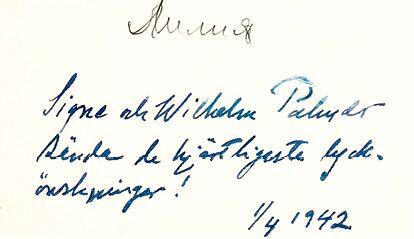 Лилия
Signe och Wilhelm
sända de hjärtligaste lyck-
önskningar!
1/4 1942.